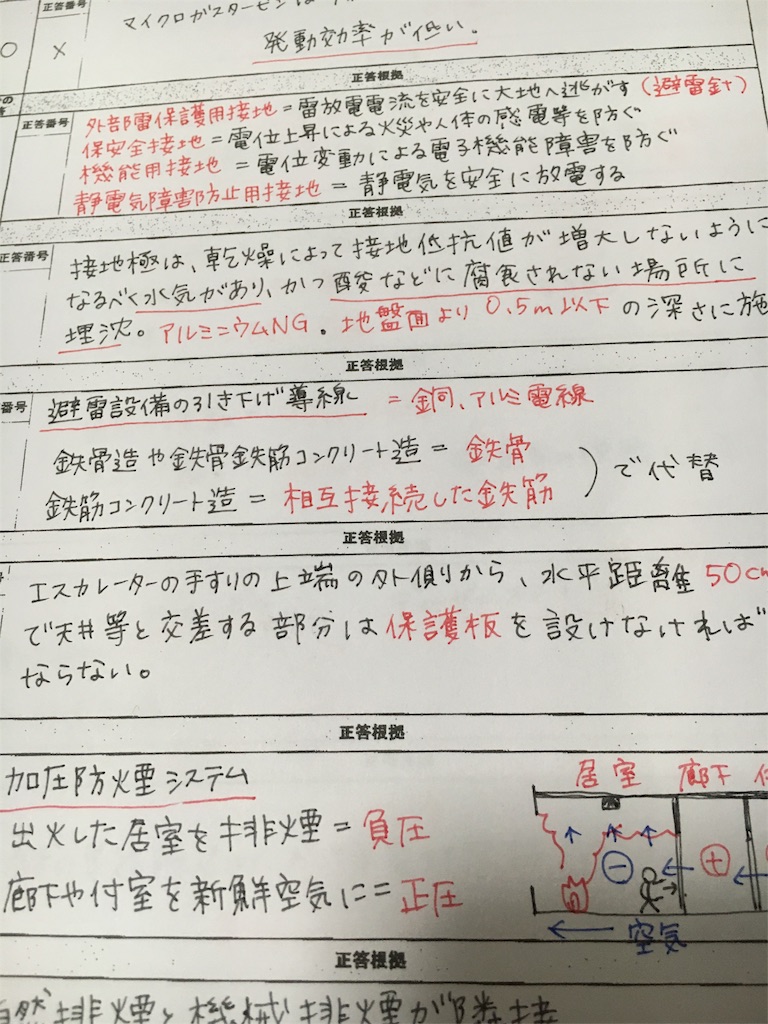 正答番号
マイクロガスタービンは
○
×
発動効率が低い。
正答根拠
正答番号
外部雷保護用接地=雷放電電流を安全に大地へ逃がす(避雷針)
保安全接地=電位上昇による火災や人体の感電等を防ぐ
機能用接地 = 電位変動による電子機能障害を防ぐ
静電気障害防止用接地 = 静電気を安全に放電する
正答根拠
正答番号
接地極は、乾燥によって接地低抗値が増大しないように
なるべく水気があり、かつ酸などに腐食されない場所に
埋沈。アルミニウムNG。地盤面より0.5m以下の深さに施
正答根拠
番号
避雷設備の引き下げ導線 = 銅、アルミ電線
鉄骨造や鉄骨鉄筋コンクリート造 = 鉄骨
鉄筋コンクリート造 = 相互接続した鉄筋 )で代替
正答根拠
エスカレーターの手すりの上端の外側から、水平距離50cm
で天井等と交差する部分は保護板を設けなければ
ならない。
正答根拠
加圧防煙システム
居室 廊下 付
出火した居室を排煙=負圧
廊下や付室を新鮮空気に=正圧
− +
空気
正答根拠
自然排煙と機械排煙が隣接